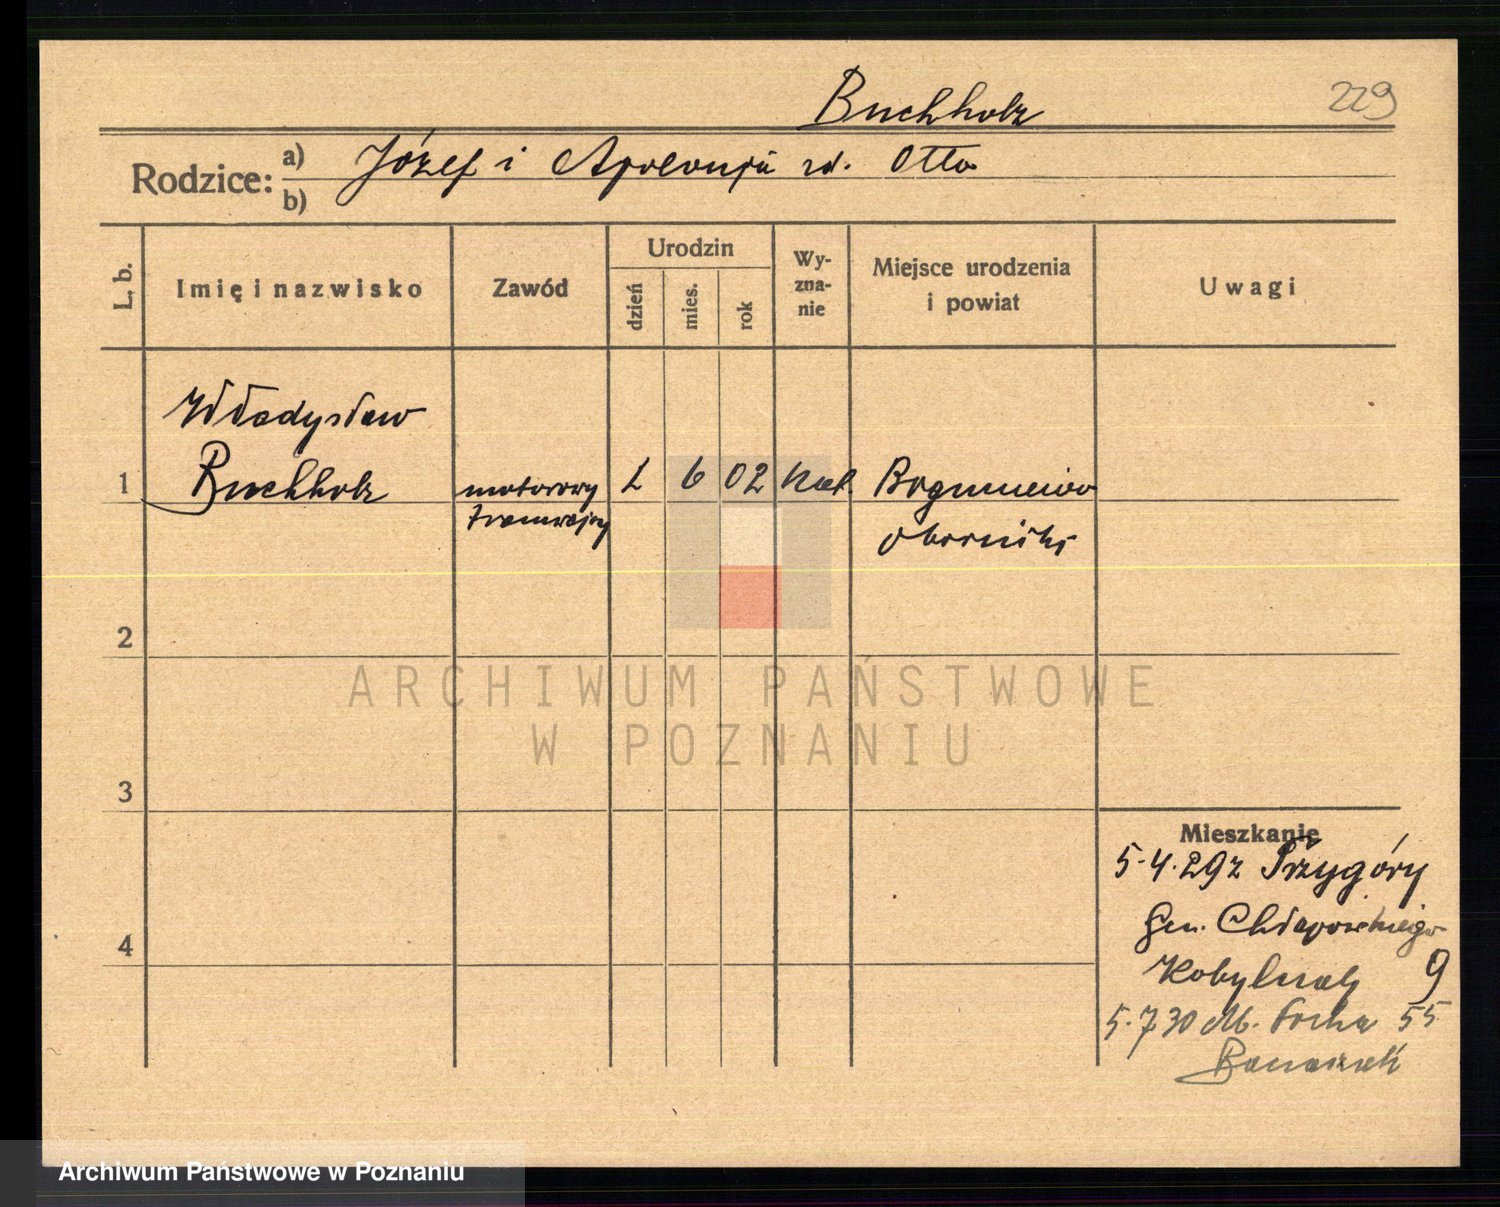 Buchholz
229
Rodzice: a) Józef i Apolonja zd. Otto
b)
L. b.
Imię i nazwisko
Zawód
Urodzin
dzień
mies.
rok
Wy-
zna-
nie
Miejsce urodzenia
i powiat
Uwagi
Władysław
1 Buchholz motorowy 2 6 02 kat. Boguniewo
tramwajowy
obornicki
2
3
4
Mieszkanie
5.4.29 z Przygóry
Gen. Chłapowskiego
9
5.7 30 M. Focha 55
Banaszak
ARCHIWUM PAŃSTWOWE
W POZNANIU
Archiwum Państwowe w Poznaniu